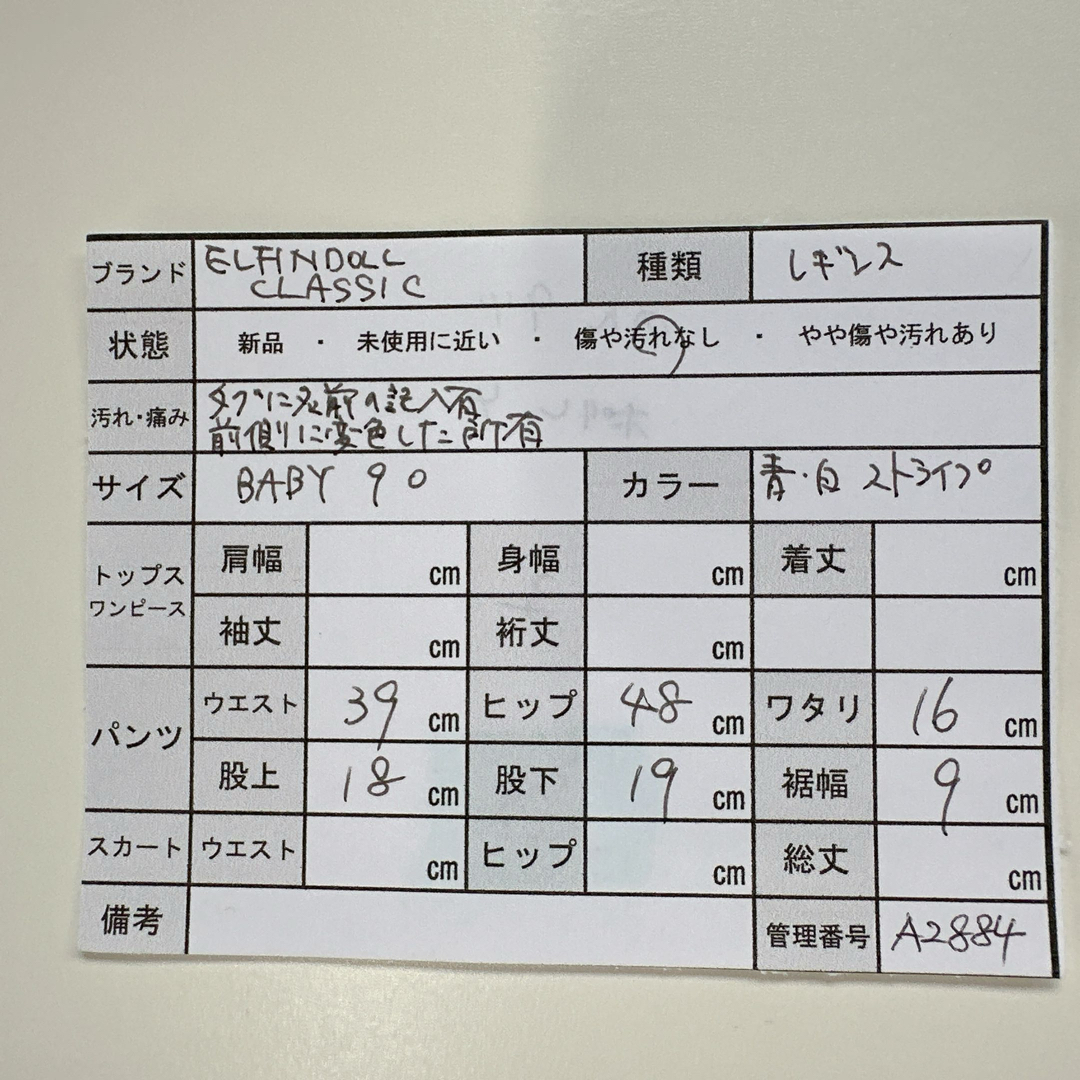 ブランド ELFINDOLL CLASSIC 種類 レギンス
状態 新品 ・ 未使用に近い ・ 傷や汚れなし ・ やや傷や汚れあり
汚れ・痛み タグに名前の記入有
前側に変色した所有
サイズ BABY 90 カラー 青・白 ストライプ
トップス ワンピース 肩幅 cm 身幅 cm 着丈 cm
袖丈 cm 裄丈 cm
パンツ ウエスト 39 cm ヒップ 48 cm ワタリ 16 cm
股上 18 cm 股下 19 cm 裾幅 9 cm
スカート ウエスト cm ヒップ cm 総丈 cm
備考 管理番号 A2884